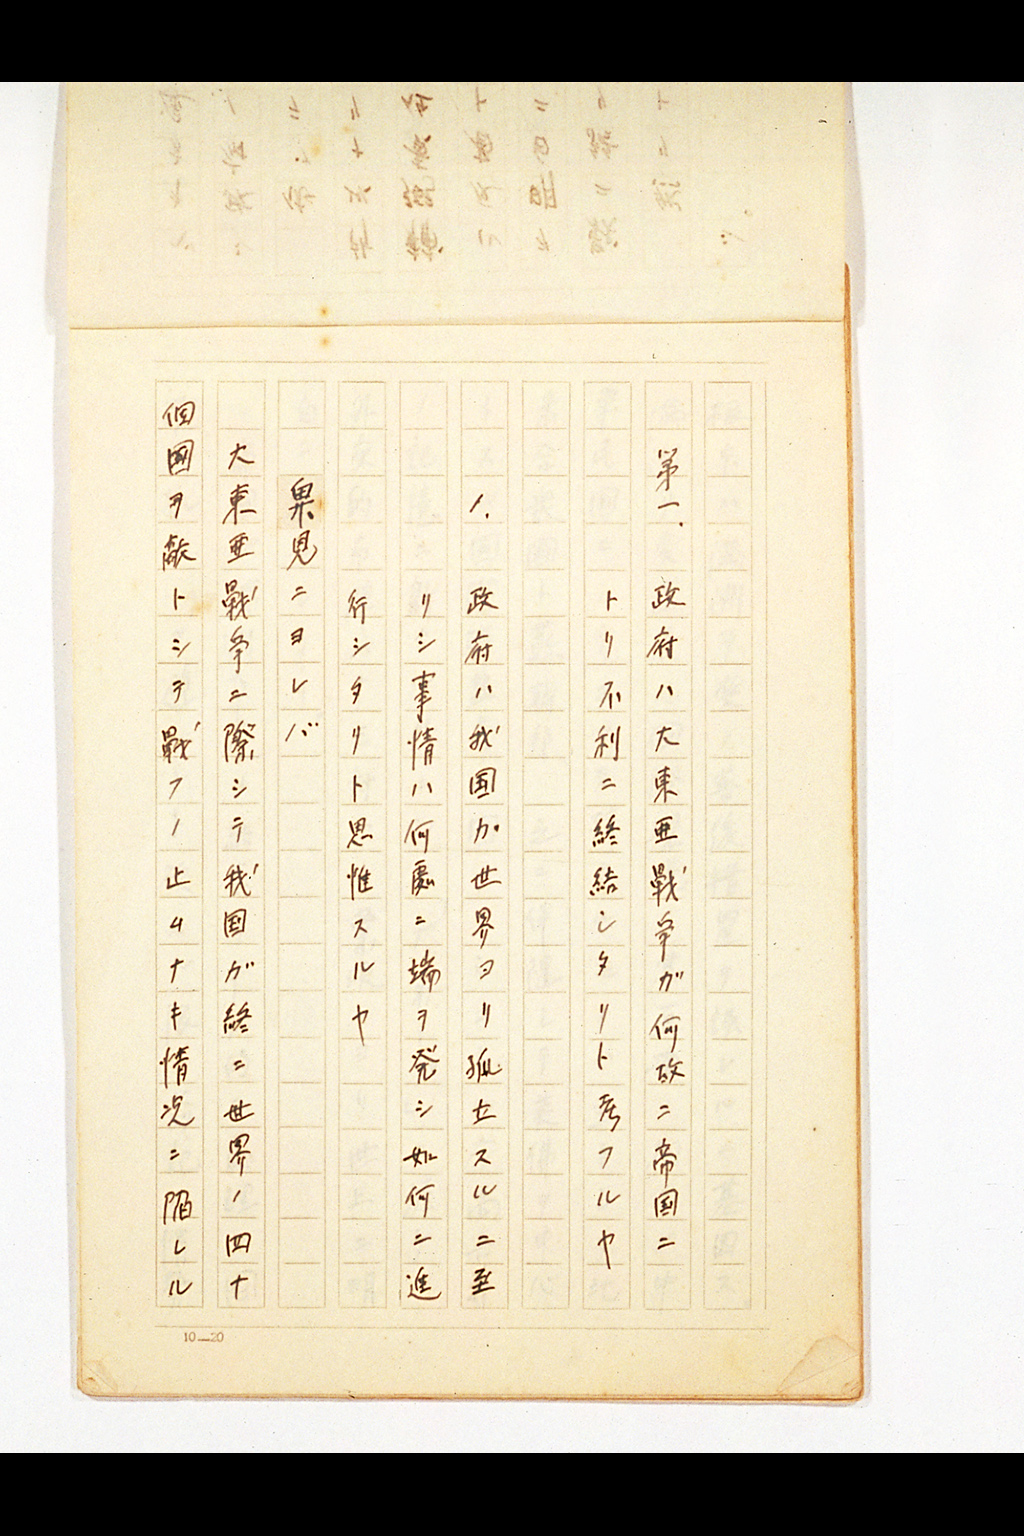 第一、政府ハ大東亜戦争ガ何故ニ帝国ニ
トリ不利ニ終結シタリト考フルヤ
1. 政府ハ我国ガ世界ヨリ孤立スルニ至
リシ事情ハ何處ニ端ヲ発シ如何ニ進
行シタリト思惟スルヤ
ニヨレバ
大東亜戦争ニ際シテ我国ガ終ニ世界ノ四十
個国ヲ敵トシテ戦フノ止ムナキ情況ニ陥レル
10—20